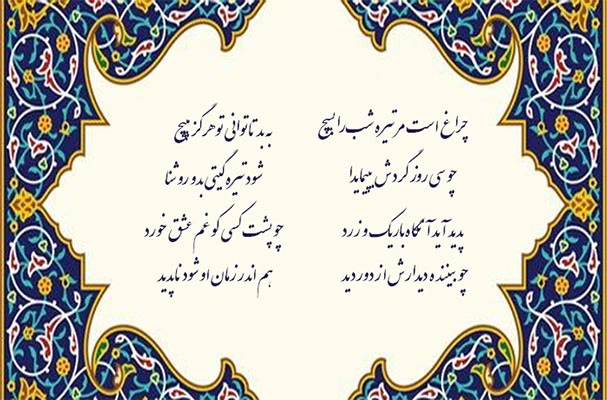 چراغ است مر تیره شب را بسیچ به بد تا توانی تو هرگز مپیچ
چو سی روز گردش بپیمایدا شود تیره گیتی بدو روشنا
پدید آید آنگاه باریک و زرد چو پشت کسی کو غم عشق خورد
چو بیننده دیدارش از دور دید هم اندر زمان او شود ناپدید